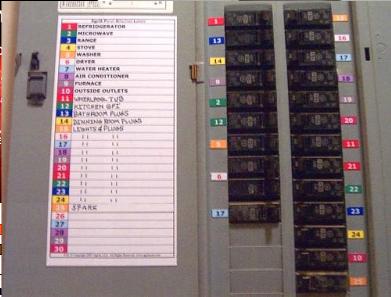 Panel
1 REFRIGERATOR
2 MICROWAVE
3 RANGE
4 STOVE
5 WASHER
6 DRYER
7 WATER HEATER
8 AIR CONDITIONER
9 FURNACE
10 OUTSIDE OUTLETS
11 WHIRLPOOL TUB
12 KITCHEN GFI
13 BATHROOM PLUGS
14 DINNING ROOM PLUGS
15 LIGHTS & PLUGS
16 " "
17 " "
18 " "
19 " "
20 " "
21 " "
22 " "
23 " "
24 " "
25 SPARE
26
27
28
29
30
1
13 16
14 17
18
2 19
12 20
5 11
21
6 22
17 23
24
10
25